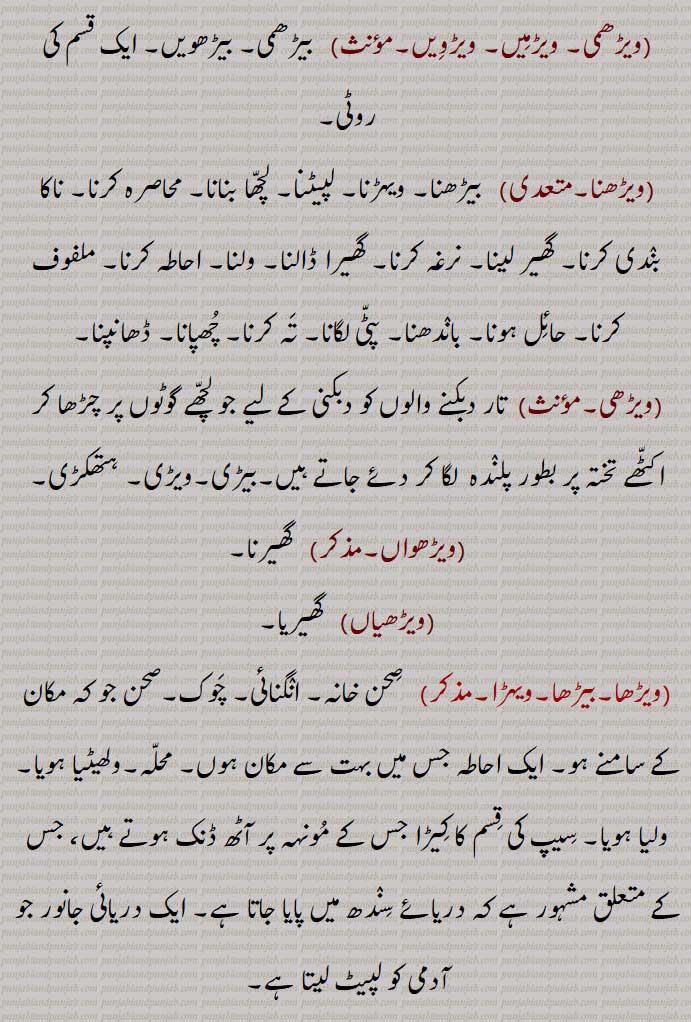 (ویڑھمی۔ ویڑمِیں۔ ویڑوِیں۔مؤنث) بیڑھمی۔ بیڑھویں۔ ایک قسم کی
روٹی۔
(ویڑھنا۔متعدی) بیڑھنا۔ ویہڑنا۔ لپیٹنا۔ لچھّا بنانا۔ محاصرہ کرنا۔ ناکا
بنْدی کرنا۔ گھیر لینا۔ نرغہ کرنا۔ گھیرا ڈالنا۔ ولنا۔ احاطہ کرنا۔ ملفوف
کرنا۔ حائِل ہونا۔ بانْدھنا۔ پٹّی لگانا۔ تَہ کرنا۔ چُھپانا۔ ڈھانپنا۔
(ویڑھی۔مؤنث) تار دبکنے والوں کو دبکنی کے لیے جو لچھّے گوٹوں پر چڑھا کر
اکٹّھے تختہ پر بطور پلنْدہ لگا کر دئے جاتے ہیں۔بیڑی۔ویڑی۔ ہتھکڑی۔
(ویڑھواں۔مذکر) گھیرنا۔
(ویڑھیاں) گھیریا۔
(ویڑھا۔بیڑھا۔ویہڑا۔مذکر) صِحن خانہ۔ انْگنائی۔ چَوک۔صحن جو کہ مکان
کے سامنے ہو۔ ایک احاطہ جس میں بہت سے مکان ہوں۔ محلّہ۔ولھیٹیا ہویا۔
ولیا ہویا۔ سِیپ کی قِسم کا کِیڑا جس کے مُونہہ پر آٹھ ڈنک ہوتے ہیں، جس
کے متعلق مشہور ہے کہ دریائے سِنْدھ میں پایا جاتا ہے۔ ایک دریائی جانور جو
آدمی کو لپیٹ لیتا ہے۔